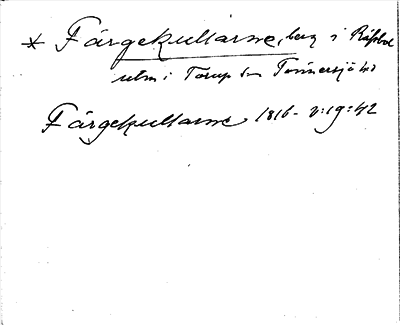 * Färgekullarne, berg i Rißbol
utm i Torup sn Tönnersjö hd
Färgekullarne 1816- v:19:42